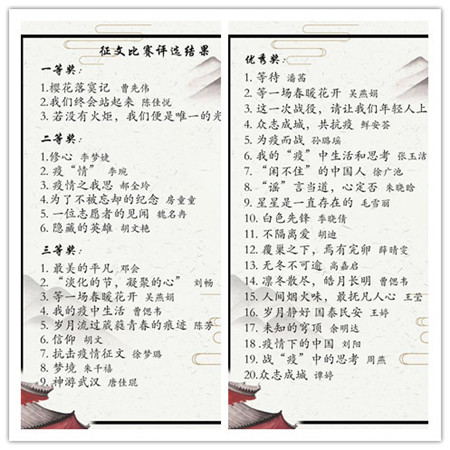 征文比赛评选结果
一等奖：
1.樱花落蓑记 曹先伟
2.我们终会站起来 陈佳悦
3.若没有火炬，我们便是唯一的光
二等奖：
1.修心 李梦婕
2.疫“情” 李琬
3.疫情之我思 郝金玲
4.为了不被忘却的纪念 房童童
5.一位志愿者的见闻 魏名冉
6.隐藏的英雄 胡文艳
三等奖：
1.最美的平凡 邓会
2.“淡化的节，凝聚的心” 刘畅
3.等一场春暖花开 吴燕娟
4.我的疫中生活 曹偲韦
5.岁月流过葳蕤青春的痕迹 陈芳
6.信仰 胡文
7.抗击疫情征文 徐梦璐
8.梦境 朱千禧
9.神游武汉 唐佳琨
优秀奖：
1.等待 潘茜
2.等一场春暖花开 吴燕娟
3.这一次战役，请让我们年轻人上
4.众志成城，共抗疫 鲜安荟
5.为疫而战 孙璐瑶
6.我的“疫”中生活和思考 张玉洁
7.“闲不住”的中国人 徐广池
8.“谣”言当道，心定否 朱晓晗
9.星星是一直存在的 毛雪丽
10.白色先锋 李晓倩
11.不隔离爱 胡迪
12.覆巢之下，焉有完卵 薛晴雯
13.无冬不可逾 高嘉启
14.凛冬散尽，皓月长明 曹偲韦
15.人间烟火味，最抚凡人心 王莹
16.岁月静好 国泰民安 王婷
17.未知的穹顶 余明达
18.疫情下的中国 刘阳
19.战“疫”中的思考 周燕
20.众志成城 谭婷